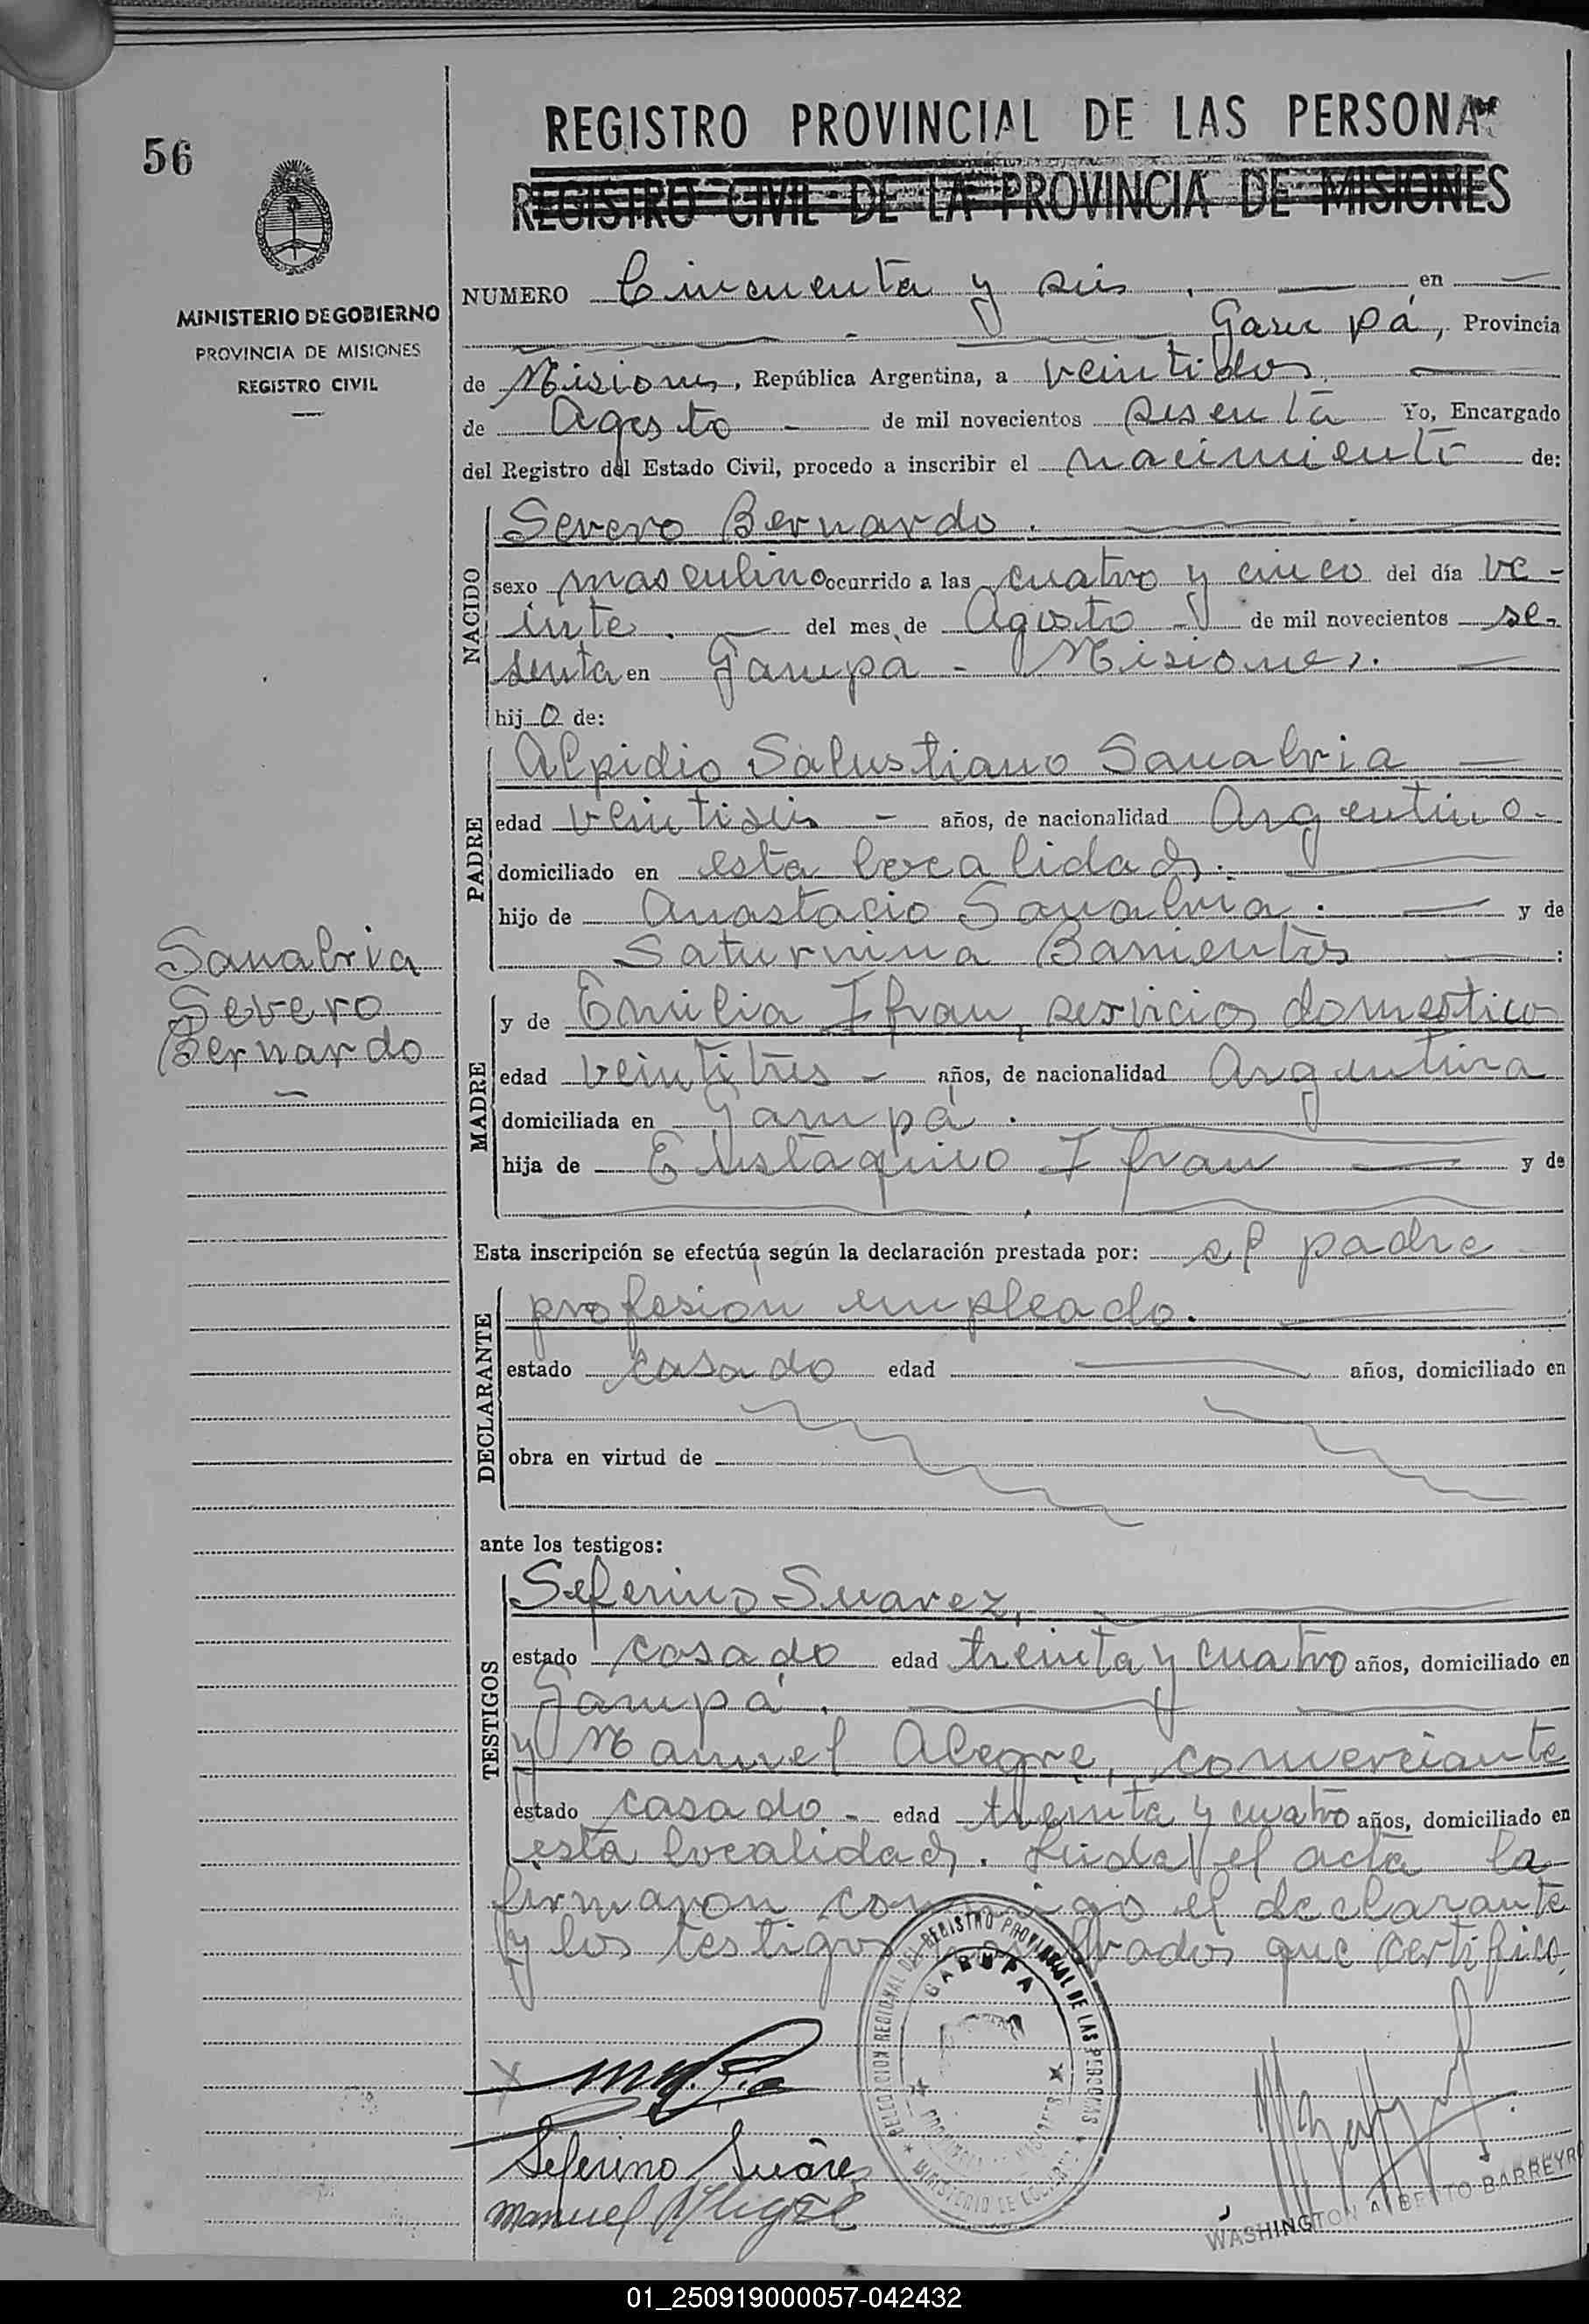 56
MINISTERIO DE GOBIERNO
PROVINCIA DE MISIONES
REGISTRO CIVIL
Sanabria
Severo
Bernardo
REGISTRO PROVINCIAL DE LAS PERSONAS
REGISTRO CIVIL DE LA PROVINCIA DE MISIONES
NUMERO Cincuenta y seis. en
Garupá, Provincia
de Misiones, República Argentina, a veintidos
de Agosto - de mil novecientos sesenta Yo, Encargado
del Registro del Estado Civil, procedo a inscribir el nacimiento de:
NACIDO
Severo Bernardo.
sexo masculino ocurrido a las cuatro y cinco del día ve-
inte. del mes de Agosto - de mil novecientos se-
senta en Garupá - Misiones.
hijo de:
PADRE
Alpidio Salustiano Sanabria
edad veintiseis - años, de nacionalidad Argentino-
domiciliado en esta localidad.
hijo de Anastacio Sanabria. y de
Saturnina Barrientos :
MADRE
y de Emilia Ifran, servicios domestico
edad veintitres - años, de nacionalidad Argentina
domiciliada en Garupá.
hija de Eustaquio Ifran y de
Esta inscripción se efectúa según la declaración prestada por: el padre
DECLARANTE
profesion empleado.
estado casado edad años, domiciliado en
obra en virtud de
ante los testigos:
TESTIGOS
Seferino Suarez,
estado casado edad treinta y cuatro años, domiciliado en
Garupá.
y Manuel Alegre, comerciante
estado casado. - edad treinta y cuatro años, domiciliado en
esta localidad. Leida el acta la
firmaron conmigo el declarante
y los testigos que certifico.
DELEGACION REGIONAL DEL REGISTRO PROVINCIAL DE LAS PERSONAS
GARUPA
MINISTERIO DE GOBIERNO
Seferino Suárez
Manuel Alegre
WASHINGTON ALBERTO BARREYRO
01_250919000057-042432